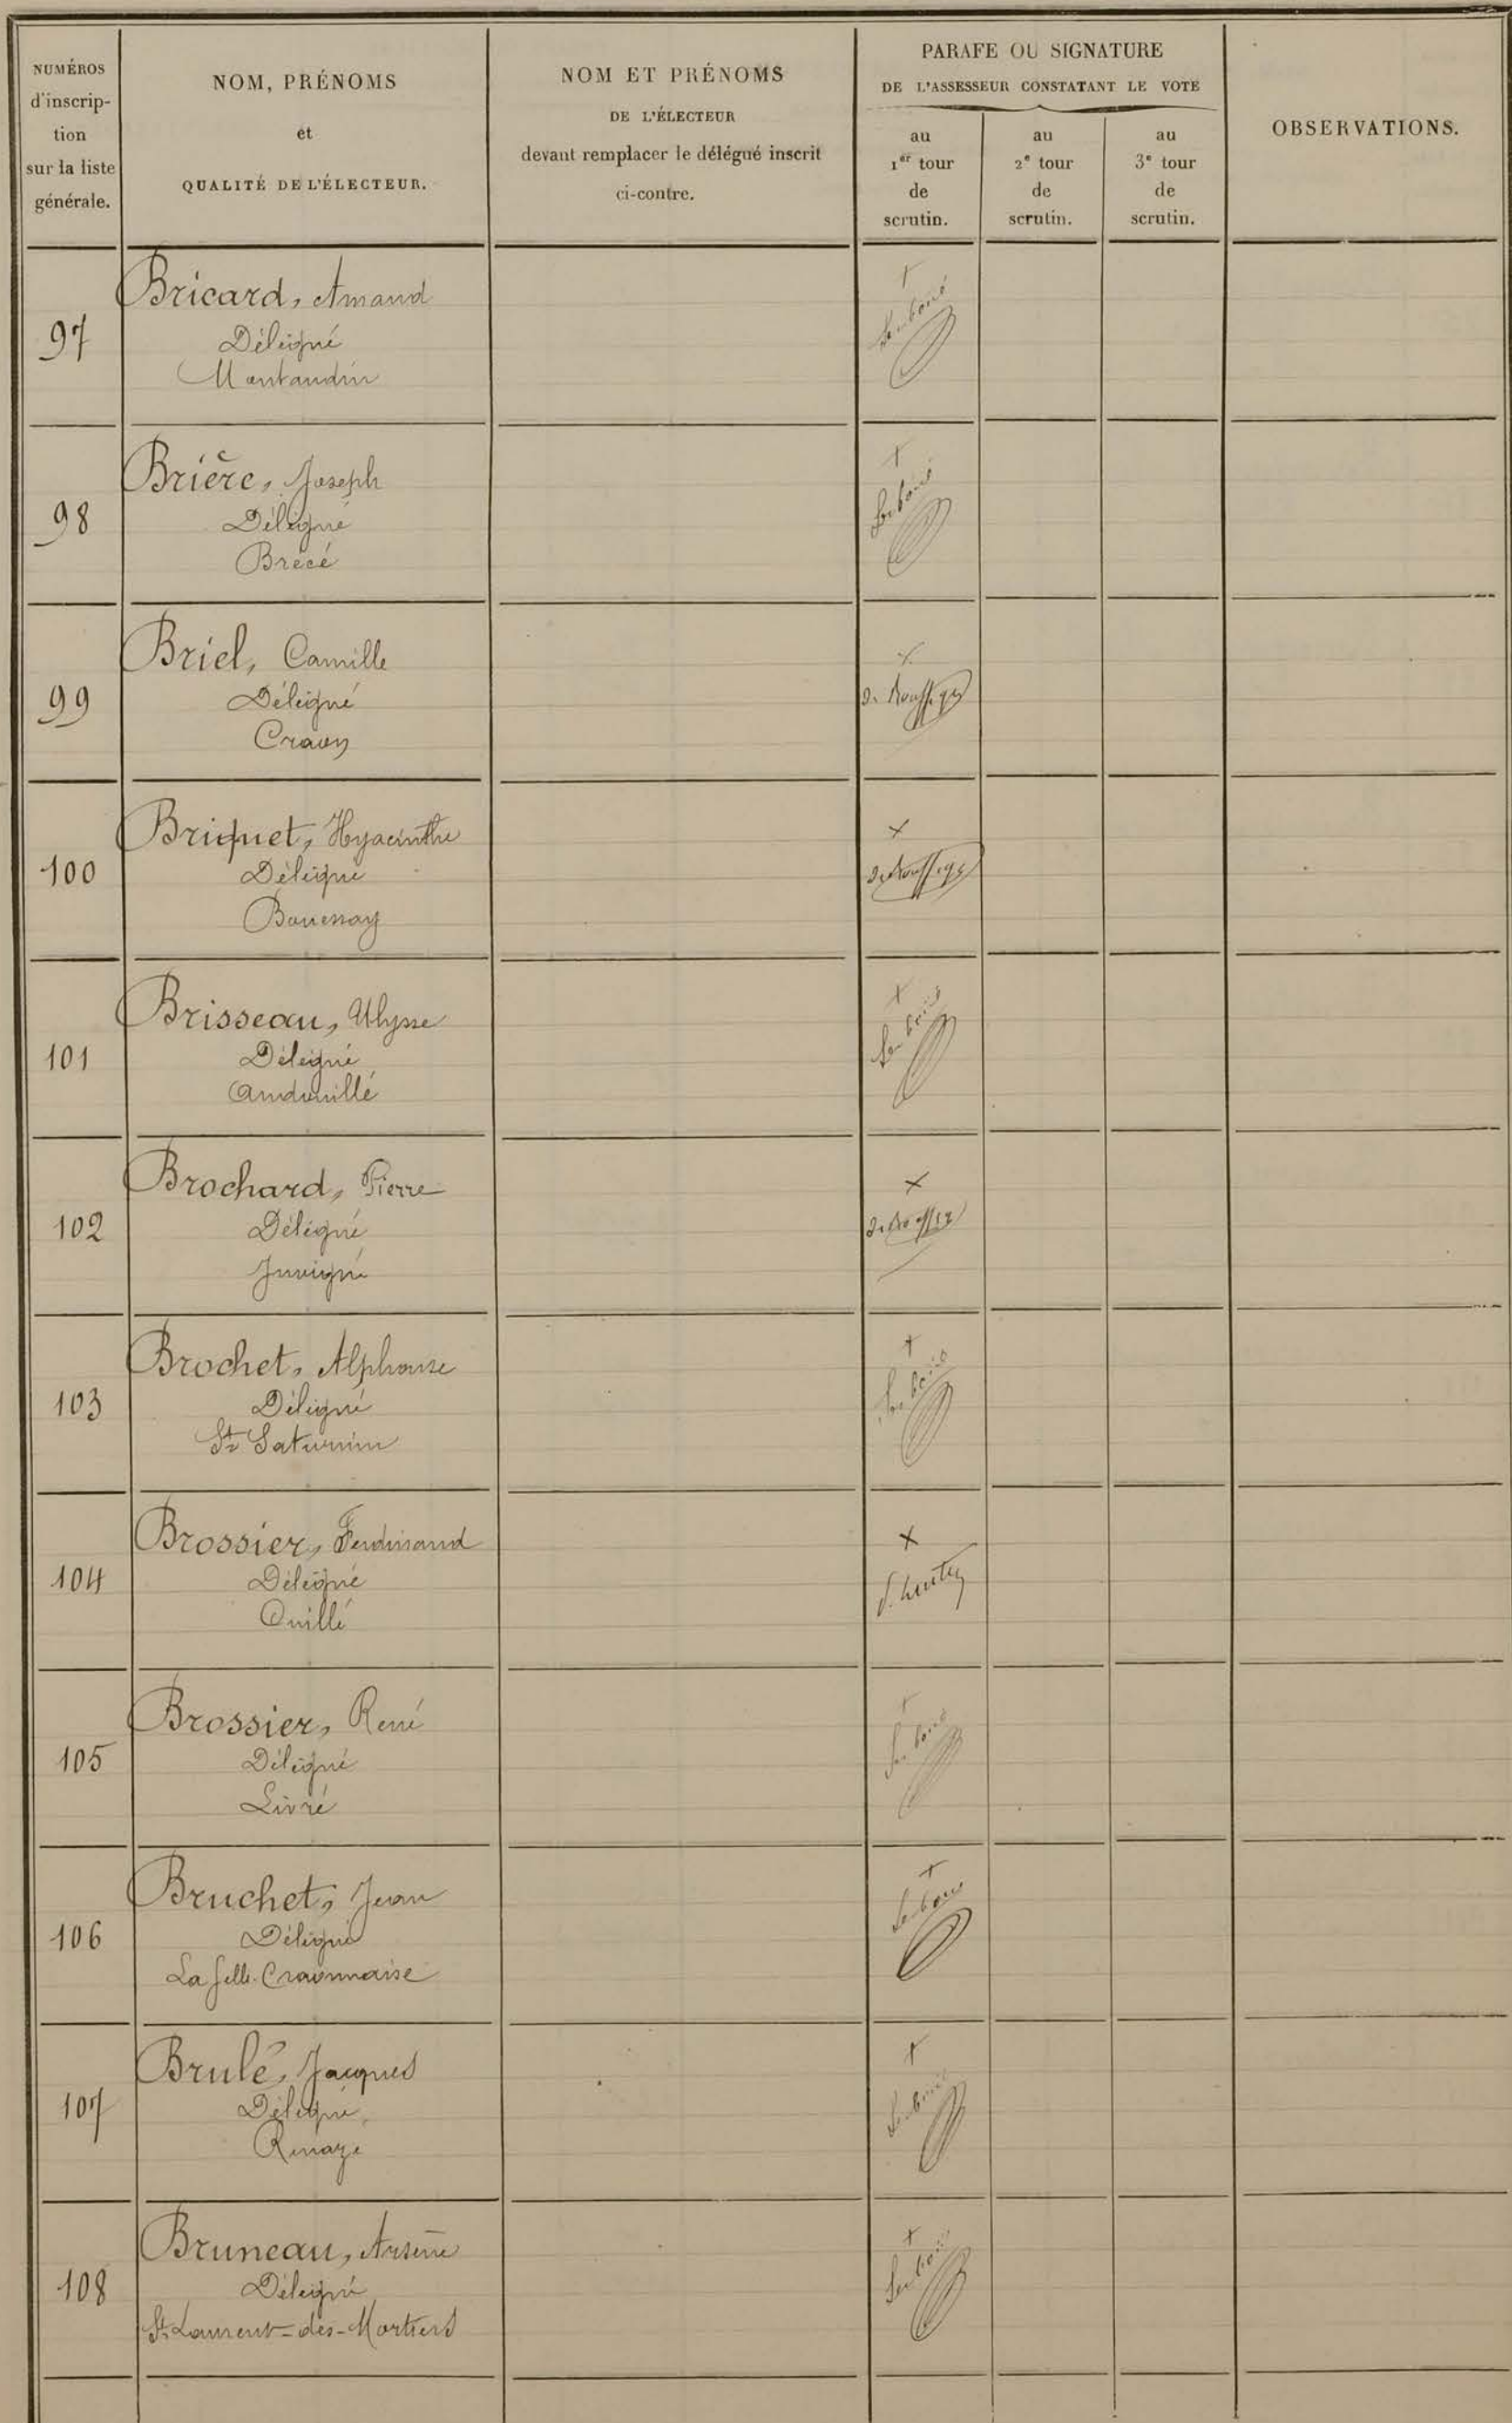 NUMÉROS
d'inscrip-
tion
sur la liste
générale.
NOM, PRÉNOMS
et
QUALITÉ DE L'ÉLECTEUR.
NOM ET PRÉNOMS
DE L'ÉLECTEUR
devant remplacer le délégué inscrit
ci-contre.
PARAFE OU SIGNATURE
DE L'ASSESSEUR CONSTATANT LE VOTE
au
1er tour
de
scrutin.
au
2e tour
de
scrutin.
au
3e tour
de
scrutin.
OBSERVATIONS.
97
Bricard, Amand
Délégué
Montaudin
98
Brière, Joseph
Délégué
Brécé
99
Briel, Camille
Délégué
Craon
100
Briquet, Hyacinthe
Délégué
Bouessay
101
Brisseau, Ulysse
Délégué
Andouillé
102
Brochard, Pierre
Délégué
Juvigné
103
Brochet, Alphonse
Délégué
St Saturnin
104
Brossier, Ferdinand
Délégué
Cuillé
105
Brossier, René
Délégué
Livré
106
Bruchet, Jean
Délégué
La Selle Craonnaise
107
Brulé, Jacques
Délégué
Renazé
108
Bruneau, Arsène
Délégué
St Laurent-des-Mortiers